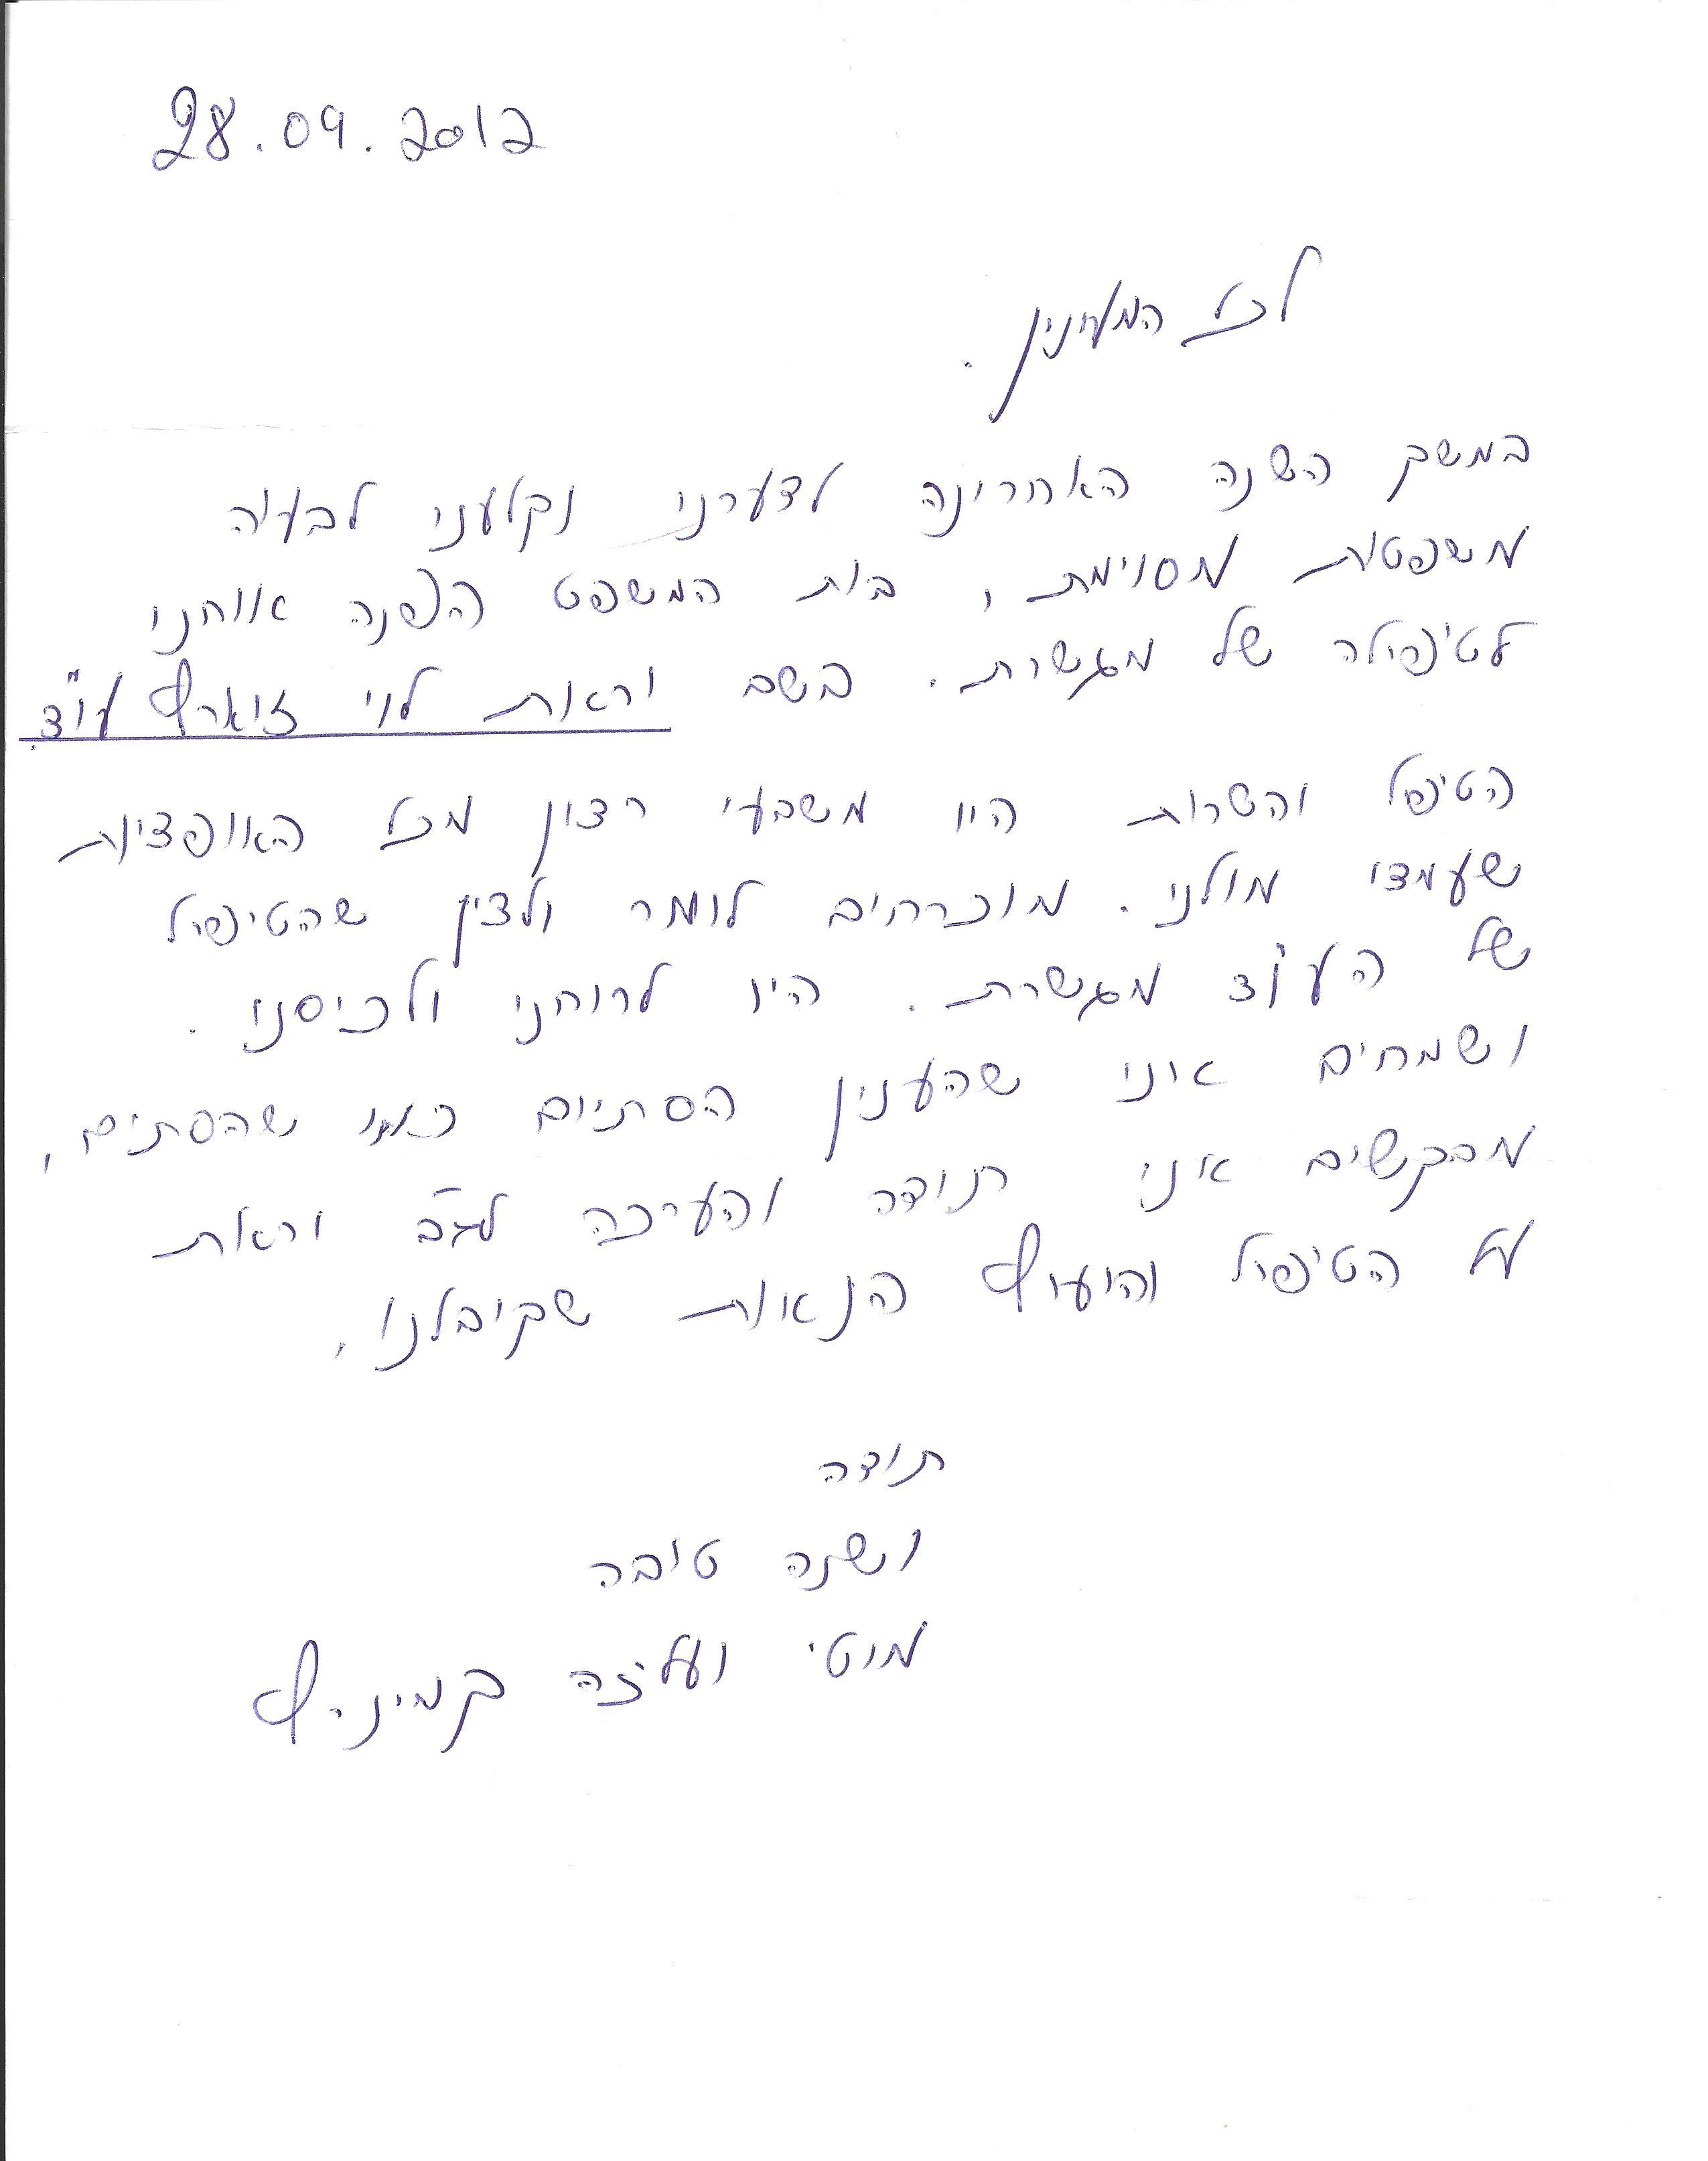 28.09.2012
לכל המעונין.
במשך השנה האחרונה לצערנו נקלענו לבעיה
משפטית מסוימת, בית המשפט הפנה אותנו
לטיפולה של מגשרת. בשם וראות לוי זוארץ עו"ד.
הטיפול והשרות היו משבעי רצון מכל האופציות
שעמדו מולנו. מוכרחים לומר ולציין שהטיפול
של העו"ד מגשרת. היו לרוחנו ולכיסנו.
ושמחים אנו שהענין הסתיים כמו שהסתים,
מבקשים אני תודה והערכה לגב' וראות
על הטיפול והיעוץ הנאות שקיבלנו,
תודה
ושנה טובה
מוטי ועליזה קמינ